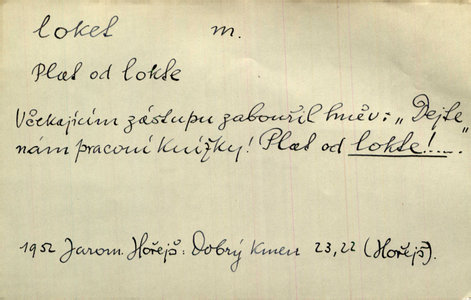 loket m.
Plat od lokte
Včekajícím zástupu zabouřil hněv: „Dejte
nám pracovní knížky! Plat od lokte!....."
1952 Jarom. Hořejš: Dobrý kmen 23,22 (Hořejš).